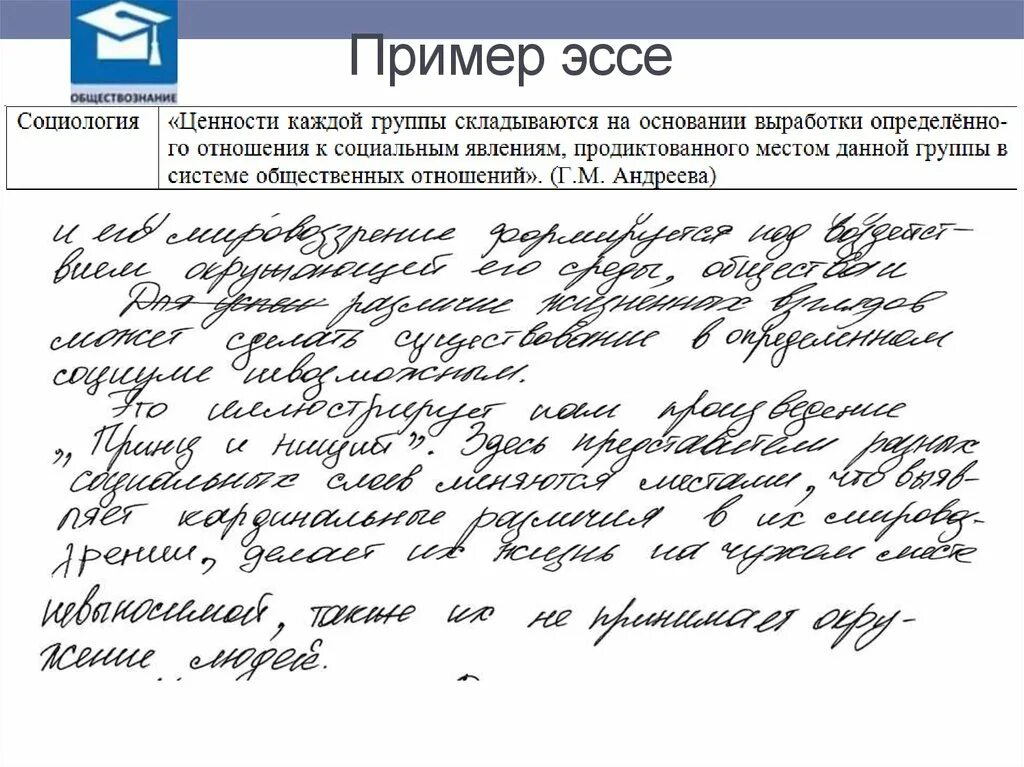 Пример эссе
ОБЩЕСТВОЗНАНИЕ
Социология
«Ценности каждой группы складываются на основании выработки определённо-
го отношения к социальным явлениям, продиктованного местом данной группы в
системе общественных отношений». (Г.М. Андреева)
и его мировоззрение формируется под воздейст-
вием окружающей его среды, общества и
Для различие жизненных взглядов
может сделать существование в определенном
социуме невозможным.
Это иллюстрирует нам произведение
„Принц и нищий". Здесь представители разных
социальных слоев меняются местами, что выяв-
ляет кардинальные различия в их мировоз-
зрении, делает их жизнь на чужом месте
невыносимой, также их не принимает окру-
жение людей.